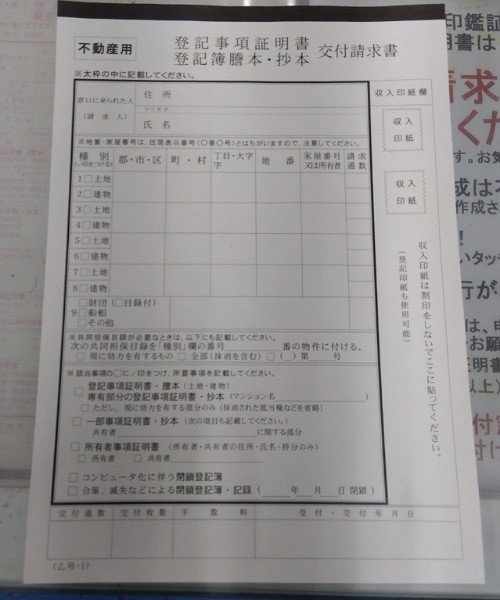 不動産用
登記事項証明書
登記簿謄本・抄本
交付請求書
※太枠の中に記載してください。
窓口に来られた人
(請求人)
住所
フリガナ
氏名
収入印紙欄
収入
印紙
収入
印紙
※地番・家屋番号は、住居表示番号(〇番〇号)とはちがいますので、注意してください。
種別
(レ印をつける)
郡・市・区
町・村
丁目・大字
字
地番
家屋番号
又は所有者
請求
通数
1□土地
2□建物
3□土地
4□建物
5□土地
6□建物
7□土地
8□建物
9
□財団(□目録付)
□船舶
□その他
※共同担保目録が必要なときは、以下にも記載してください。
次の共同担保目録を「種別」欄の番号 番の物件に付ける。
□現に効力を有するもの □全部(抹消を含む) □( )第 号
※該当事項の□にレ印をつけ、所要事項を記載してください。
□登記事項証明書・謄本(土地・建物)
専有部分の登記事項証明書・抄本(マンション名 )
□ただし、現に効力を有する部分のみ(抹消された抵当権などを省略)
□一部事項証明書・抄本(次の項目も記載してください。)
共有者 に関する部分
□所有者事項証明書(所有者・共有者の住所・氏名・持分のみ)
□所有者 □共有者
□コンピュータ化に伴う閉鎖登記簿
□合筆、滅失などによる閉鎖登記簿・記録( 年 月 日閉鎖)
収入印紙は割印をしないでここに貼ってください。
(登記印紙も使用可能)
交付通数
交付枚数
手数料
受付・交付年月日
(乙号・1)